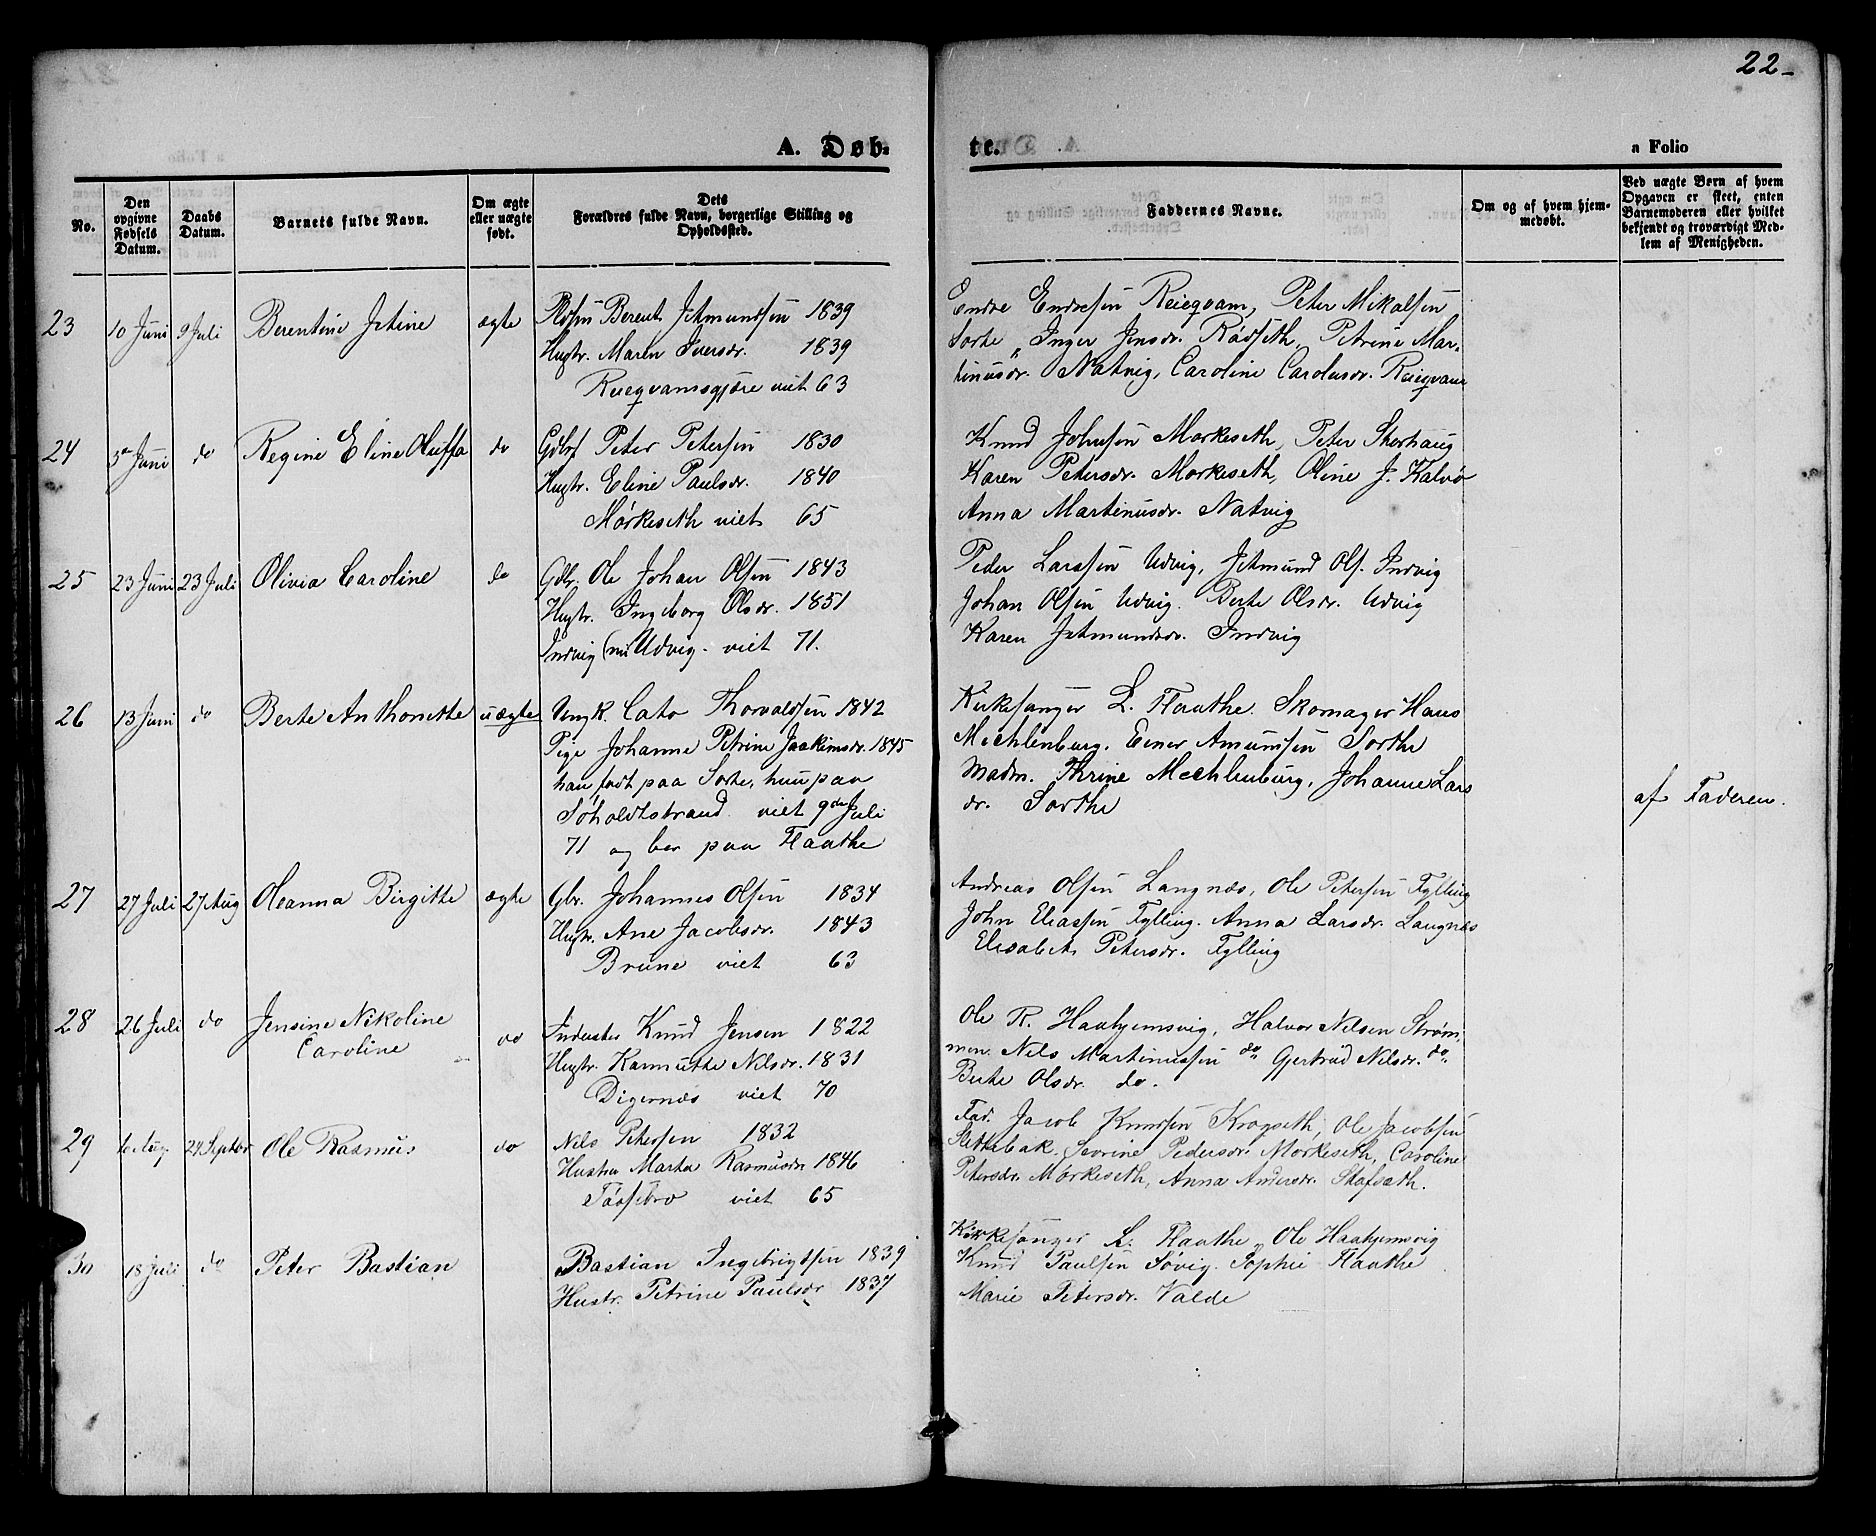 22-
A. Døb-
te.
a Folio
No.
Den opgivne Fødsels Datum.
Daabs Datum.
Barnets fulde Navn.
Om ægte eller uægte født.
Dets Forældres fulde Navn, borgerlige Stilling og Opholdssted.
Faddernes Navne.
Om og af hvem hjemmedøbt.
Ved uægte Børn af hvem Opgaven er skeet, enten Barnemoderen eller hvilket bekjendt og troværdigt Medlem af Menigheden.
23 10 Juni 9 Juli Berentine Jetine ægte
Berent Jetmundsen 1839
Hustr. Maren Iversdr. 1839
viet 63
Endre Endresen Reieqvam, Peter Mikalsen
Sorte, Inger Jensdr. Rødseth, Petrine Mar-
tinusdr. Natvig, Caroline Carolusdr. Reieqvam
24 Juni do Regine Eline do
Peter Petersen 1830
Hustr. Eline Paulsdr. 1840
Mørkeseth viet 65
Knud Johnsen Mørkeseth, Peter Storhaug
Karen Petersdr. Mørkeseth, Oline J. Kalvø
Anna Martinusdr. Natvig
25 23 Juni 23 Juli Olivia Caroline do
Gdbr. Ole Johan Olsen 1843
Hustr. Ingeborg Olsdr. 1851
Indvig (nu Udvig. viet 71.
Peder Larssen Udvig, Jetmund Ols. Indvig
Johan Olsen Udvig. Berte Olsdr. Udvig
Karen Jetmundsdr. Indvig
26 13 Juni do Berte Anthonette uægte
Ungk. Cato Thorvaldsen 1842
Pige Johanne Petrine Jaakimsdr. 1845
han født paa Sorte, hun paa
Søholdtstrand viet 9de Juli
71 og bor paa Flaathe
Kirkesanger L. Flaathe. Skomager Hans
Mechlenburg. Einer Amundsen Sorthe
Madm. Thrine Mechlenburg, Johanne Lars
dr. Sorthe
af Faderen.
27 27 Juli 27 Aug Oleanna Birgitte ægte
Gbr. Johannes Olsen 1834
Hustr. Ane Jacobsdr. 1843
Brune viet 63
Andreas Olsen Langnæs, Ole Petersen Fylling
John Eliassen Fylling. Anna Larsdr. Langnæs
Elisabet Petersdr. Fylling
28 26 Juli do Jensine Nikoline
Caroline do
Inderster Knud Jensen 1822
Hustr. Nilsdr. 1831
Digernæs viet 70
Ole R. Haahjemsvig, Halvor Nilsen Strøm-
men. Nils Martinussen do Gjertrud Nilsdr. do.
Berte Olsdr. do.
29 Aug. 24 Septbr Ole Rasmus do
Nils Petersen 1832
Hustru Marta Rasmusdr 1846
viet 65
Fad. Jacob Knudsen Krogseth, Ole Jacobsen
Slettebak. Severine Pedersdr Mørkeseth, Caroline
Petersdr. Mørkeseth, Anna Andersdr. Stafseth.
30 18 Juli do Peter Bastian
Bastian Ingebrigtsen 1839
Hustr. Petrine Paulsdr 1837
Kirkesanger L. Flaathe, Ole Haahjemsvig
Knud Paulsen Søvig. Sophie Flaathe
Marie Petersdr. Valde